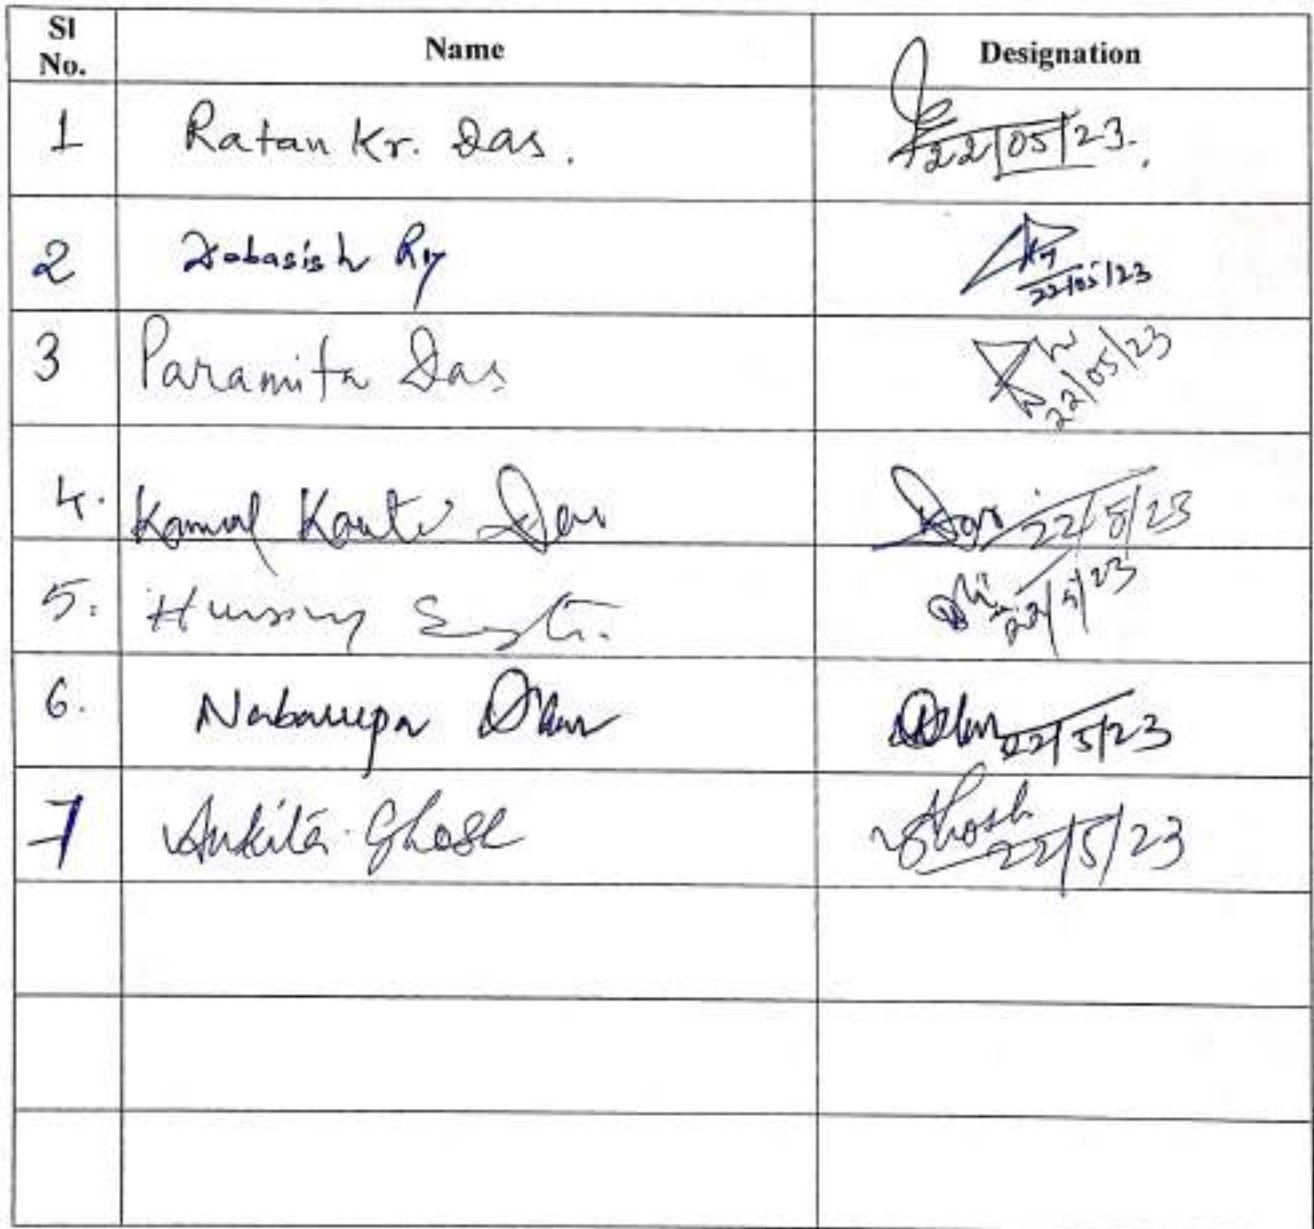 Sl No. Name Designation
1 Ratan Kr. Das. 22/05/23.
2 Debasish Roy 22/05/23
3 Paramita Das 22/05/23
4. Kamal Kanti Dev 22/5/23
5. 22/5/23
6. Nabarupa Dhar Dhar 22/5/23
7 Ankita Ghosh Ghosh 22/5/23